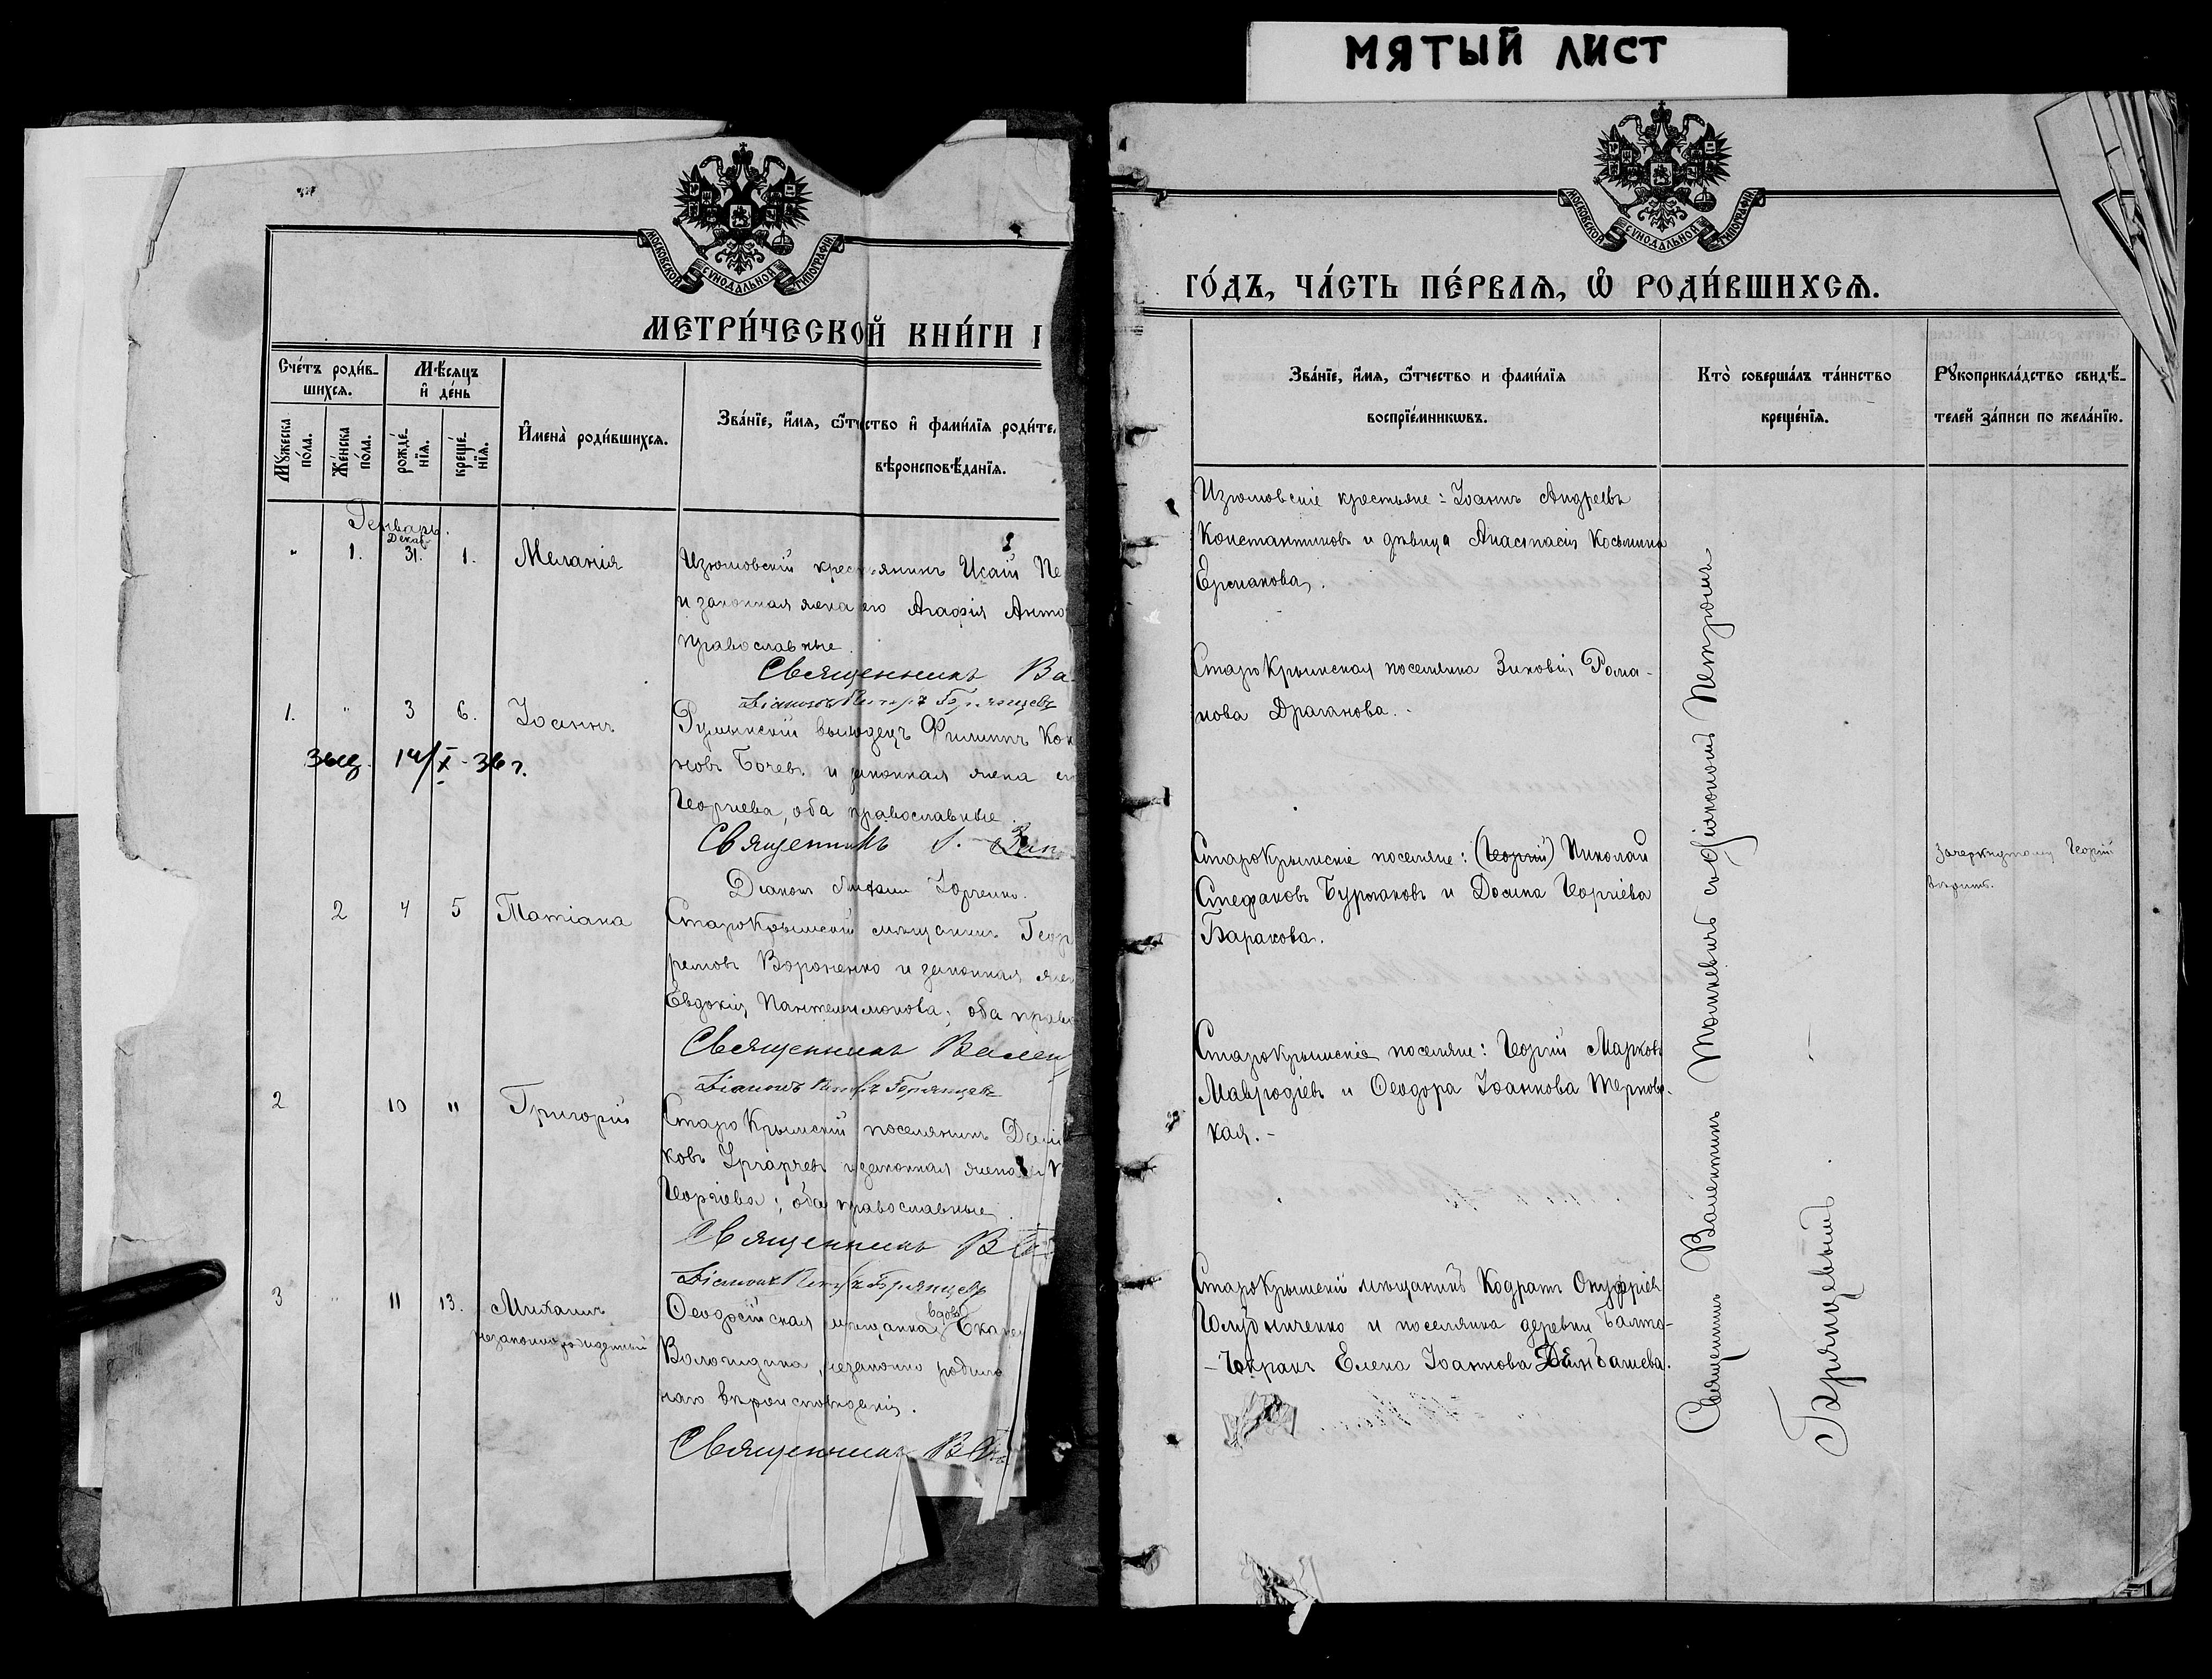 МЯТЫЙ ЛИСТ
МОСКОВСКОЙ СѴНОДАЛЬНОЙ ТИПОГРАФІИ
МЕТРИ́ЧЕСКОЙ КНИ́ГИ
Сче́тъ роди́в-
шихся.
Мѣ́сяцъ
и҆ де́нь
Мꙋ́жеска
по́ла.
Же́нска
по́ла.
рожде́-
нїя.
креще́-
нїя.
И҆мена̀ роди́вшихся.
Зва́нїе, и҆́мя, ѻ҆́тчество и҆ фами́лїя роди́те
вѣроисповѣ́данїя.
Генварь.
Декаб.
" 1. 31. 1. Меланія
Изюмовскій крестьянинъ Исаій Пе
и законная жена его Агафія Анто
православные.
Священникъ Ва
Діаконъ Петръ Брянцевъ
1. " 3 6. Іоаннъ
Румынскій выходецъ Филиппъ Кон
новъ Бочевъ и законная жена ег
Георгиева, оба православные.
14/X-36 г.
Священникъ
Діаконъ Юрченко.
2 4 5 Татіана
Старокрымскій мѣщанинъ Геор
ремовъ Вороненко и законная жен
Евдокія Пантелимонова; оба право
Священникъ Вален
Діаконъ Петръ Брянцевъ
2 10 11 Григорій
СтароКрымскій поселянинъ Дан
ковъ и законная жена
Георгіева; оба православные.
Священникъ В
Діаконъ Петръ Брянцевъ
3 " 11 13. Михаилъ
незаконнорожденный
Ѳеодосійская мѣщанка вдова Ека
незаконно родила
наго вѣроисповѣданія.
Священникъ В
МОСКОВСКОЙ СѴНОДАЛЬНОЙ ТИПОГРАФІИ
ГО́ДЪ, ЧА́СТЬ ПЕ́РВАѦ, Ѡ҆ РОДИ́ВШИХСѦ.
Зва́нїе, и҆́мя, ѻ҆́тчество и фами́лїя
воспрїе́мникѡвъ.
Кто̀ соверша́лъ та́инство
креще́нїя.
Рꙋкоприкла́дство свидѣ́-
телей за́писи по жела́нїю.
Изюмовскіе крестьяне: Іоаннъ Андреевъ
Константиновъ и дѣвица Анастасія Косьмина
Ермакова.
СтароКрымская поселянка Зиновія Рома-
нова Драганова.
СтароКрымскіе поселяне: (Георгій) Николай
Стефановъ Бурлаковъ и Досина Георгіева
Баракова.
Зачеркнутому Георгій
вѣрить.
СтароКрымскіе поселяне: Георгій Марковъ
Мавродіевъ и Ѳеодора Іоаннова Тернов-
кая.-
СтароКрымскій мѣщанинъ Кодратъ Онуфріев
Голубниченко и поселянка деревни Балта-
-Чокракъ Елена Іоаннова
Священникъ Валентинъ съ діакономъ Петромъ
Брянцевымъ